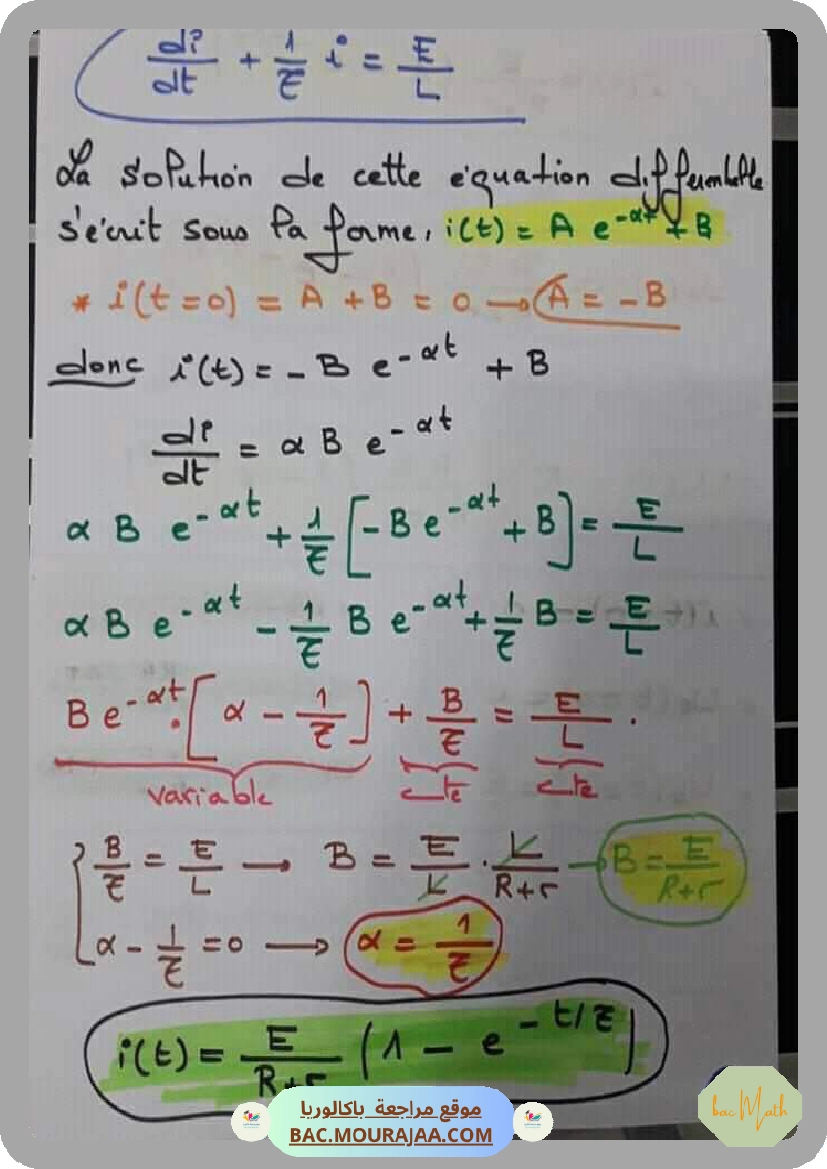 di/dt + 1/τ i = E/L
La solution de cette équation différentielle
s'écrit sous la forme, i(t) = A e^-αt + B
* i(t=0) = A + B = 0 → A = - B
donc i(t) = - B e^-αt + B
di/dt = α B e^-αt
α B e^-αt + 1/τ [-B e^-αt + B] = E/L
α B e^-αt - 1/τ B e^-αt + 1/τ B = E/L
B e^-αt . [α - 1/τ] + B/τ = E/L .
variable cte cte
{ B/τ = E/L → B = E/L . L/R+r → B = E/R+r
α - 1/τ = 0 → α = 1/τ
i(t) = E/R+r (1 - e^-t/τ)
موقع مراجعة باكالوريا
BAC.MOURAJAA.COM
bac Math